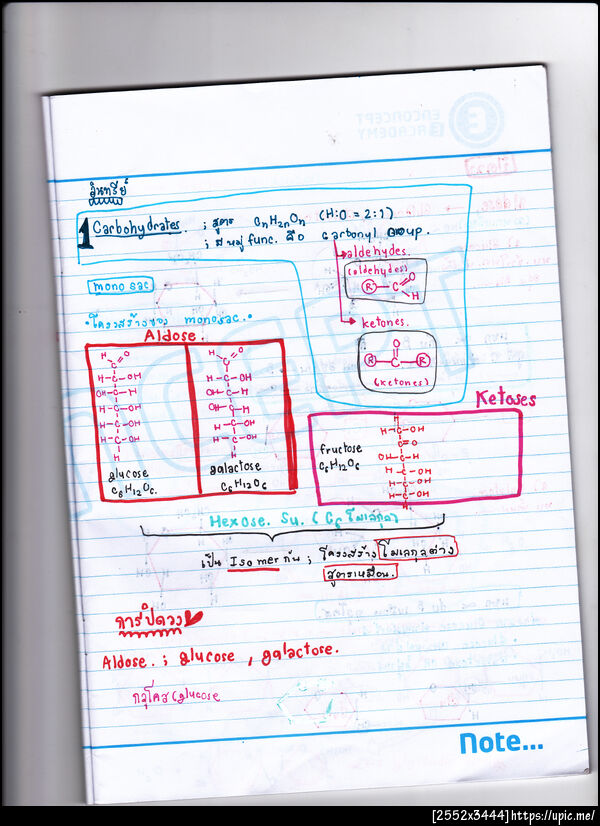 อินทรีย์
1 Carbohydrates. ; สูตร CnH2nOn (H:O = 2:1)
; มีหมู่ func. คือ carbonyl group.
aldehydes.
(aldehydes)
R C O
H
ketones.
O
R C R
(ketones)
mono sac
•โครงสร้างของ monosac.•
Aldose.
H C O
H-C-OH
OH-C-H
H-C-OH
H-C-OH
H-C-OH
H
glucose
C6H12O6.
H C O
H-C-OH
OH-C-H
OH-C-H
H-C-OH
H-C-OH
H
galactose
C6H12O6
Ketoses
fructose
C6H12O6
H
H-C-OH
C=O
OH-C-H
H-C-OH
H-C-OH
H-C-OH
H
Hexose.
เป็น Isomer กัน ; โครงสร้างโมเลกุลต่าง
สูตรเหมือน.
การปิดวง
Aldose. ; glucose , galactose.
กลูโคส (glucose
Note...
[2552x3444]https://upic.me/